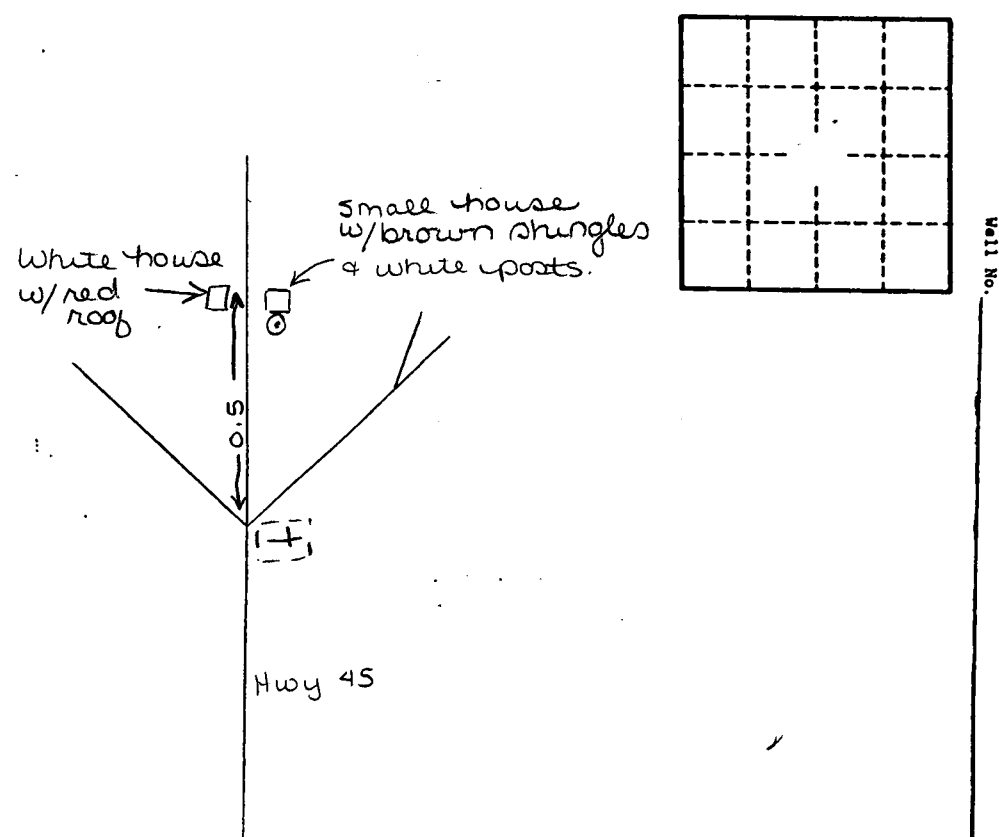 Small house
w/brown shingles
& white posts.
White house
w/red
roof
0.5
Hwy 45
Well No.